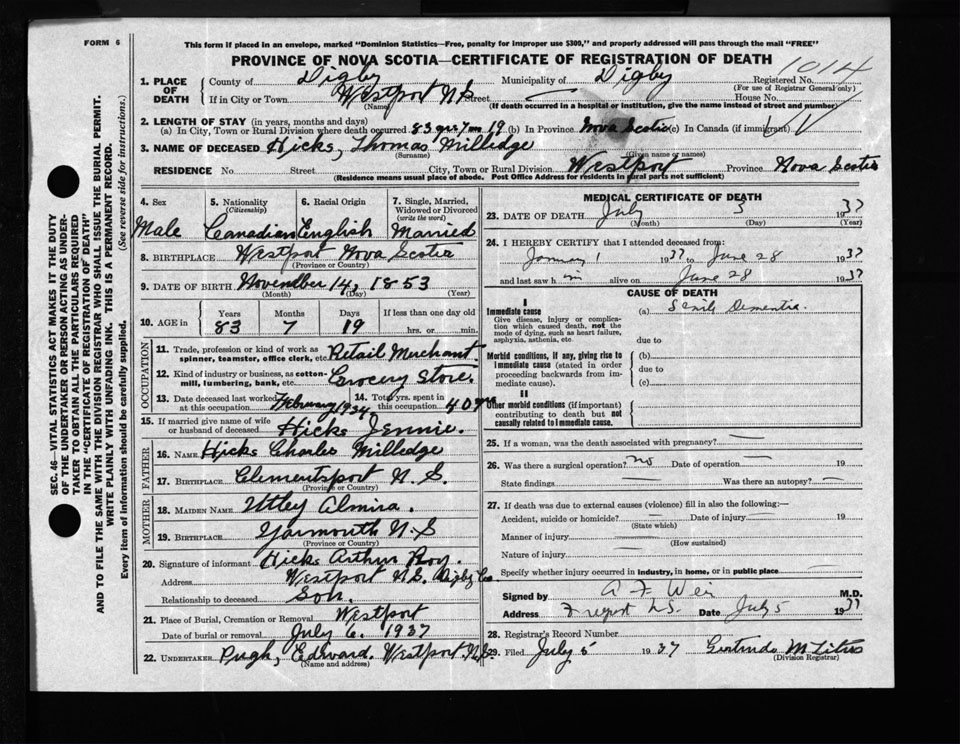 FORM 6
This form if placed in an envelope, marked "Dominion Statistics—Free, penalty for improper use $300," and properly addressed will pass through the mail "FREE"
PROVINCE OF NOVA SCOTIA—CERTIFICATE OF REGISTRATION OF DEATH
1014
1. PLACE OF DEATH County of Digby Municipality of Digby Registered No.
(For use of Registrar General only)
If in City or Town Westport N S Street House No.
(Name) (If death occurred in a hospital or institution, give the name instead of street and number)
2. LENGTH OF STAY (in years, months and days)
(a) In City, Town or Rural Division where death occurred 83 yrs 7 mo 19 (b) In Province Nova Scotia (c) In Canada (if immigrant)
3. NAME OF DECEASED Hicks, Thomas Milledge
(Surname) (Given name or names)
RESIDENCE No. Street City, Town or Rural Division Westport Province Nova Scotia
(Residence means usual place of abode. Post Office Address for residents in rural parts not sufficient)
SEC. 46—VITAL STATISTICS ACT MAKES IT THE DUTY
OF THE UNDERTAKER OR PERSON ACTING AS UNDER-
TAKER TO OBTAIN ALL THE PARTICULARS REQUIRED
IN THE "CERTIFICATE OF REGISTRATION OF DEATH"
AND TO FILE THE SAME WITH THE DIVISION REGISTRAR WHO SHALL ISSUE THE BURIAL PERMIT.
WRITE PLAINLY WITH UNFADING INK. THIS IS A PERMANENT RECORD.
Every item of information should be carefully supplied. (See reverse side for instructions.)
4. Sex 5. Nationality (Citizenship) 6. Racial Origin 7. Single, Married, Widowed or Divorced (write the word)
Male Canadian English Married
8. BIRTHPLACE Westport Nova Scotia
(Province or Country)
9. DATE OF BIRTH November 14, 1853
(Month) (Day) (Year)
10. AGE in Years Months Days If less than one day old
83 7 19 hrs. or min.
OCCUPATION
11. Trade, profession or kind of work as spinner, teamster, office clerk, etc. Retail Merchant
12. Kind of industry or business, as cotton-mill, lumbering, bank, etc. Grocery Store.
13. Date deceased last worked at this occupation February 1934 14. Total yrs. spent in this occupation 40 yrs
15. If married give name of wife or husband of deceased Hicks Jennie.
FATHER
16. Name Hicks Charles Milledge
17. BIRTHPLACE Clementsport N. S.
(Province or Country)
MOTHER
18. MAIDEN NAME Utley Almira.
19. BIRTHPLACE Yarmouth N-S
(Province or Country)
20. Signature of informant Hicks Arthur Roy.
Address Westport N.S. Digby Co
Relationship to deceased Son.
21. Place of Burial, Cremation or Removal Westport
Date of burial or removal July 6. 1937
22. UNDERTAKER Pugh, Edward. Westport. N.S.
(Name and address)
MEDICAL CERTIFICATE OF DEATH
23. DATE OF DEATH July 3 1937
(Month) (Day) (Year)
24. I HEREBY CERTIFY that I attended deceased from:
January 1 1937 to June 28 1937
and last saw h im alive on June 28 1937
CAUSE OF DEATH
I
Immediate cause (a) Senile Dementia
Give disease, injury or complication which caused death, not the mode of dying, such as heart failure, asphyxia, asthenia, etc.
due to
Morbid conditions, if any, giving rise to immediate cause (stated in order proceeding backwards from immediate cause).
(b)
due to
(c)
II
Other morbid conditions (if important) contributing to death but not causally related to immediate cause.
25. If a woman, was the death associated with pregnancy? —
26. Was there a surgical operation? no Date of operation — 19
State findings Was there an autopsy? —
27. If death was due to external causes (violence) fill in also the following:—
Accident, suicide or homicide? — Date of injury — 19
(State which)
Manner of injury —
(How sustained)
Nature of injury —
Specify whether injury occurred in industry, in home, or in public place —
Signed by A F Weir M.D.
Address Freeport N.S. Date July 5 1937
28. Registrar's Record Number
29. Filed July 5 1937 Gertrude M
(Division Registrar)